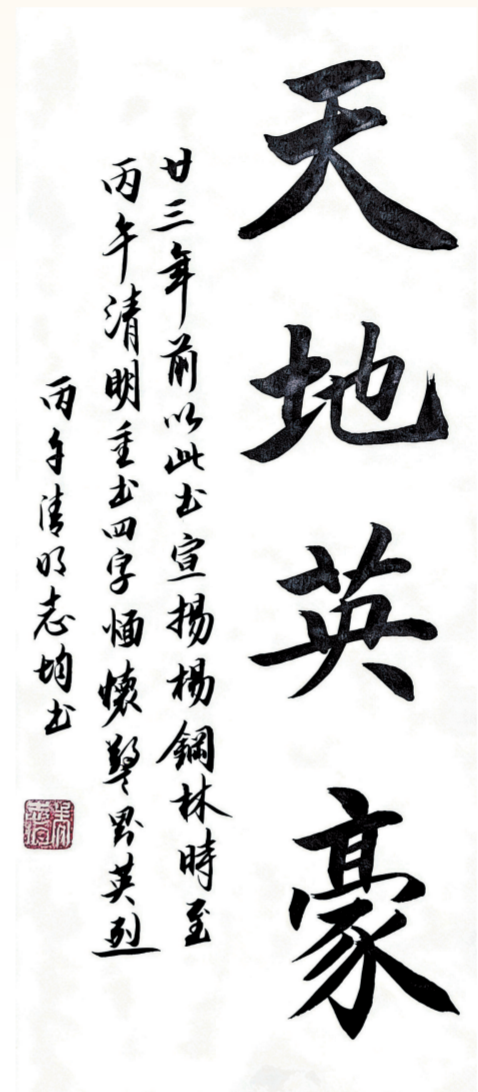 天地英豪
廿三年前以此书宣揚楊鋼林時至
丙午清明重书四字愐懷警界英烈
丙午清明志均书